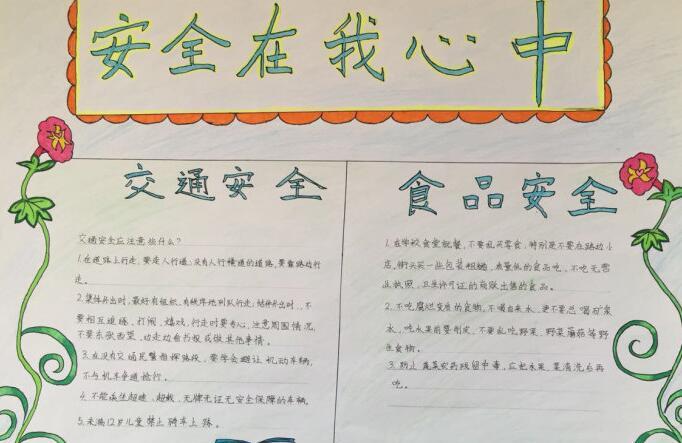 安全在我心中
交通安全
交通安全应注意些什么?
1.在道路上行走,要走人行道;没有人行横道的道路,要靠路边行
走。
2.集体外出时,最好有组织、有秩序地列队行走;结伴外出时,不
要相互追逐、打闹、嬉戏;行走时要专心,注意周围情况,
不要东张西望、边走边看书报或做其他事情。
3.在没有交通民警指挥路段,要学会避让机动车辆,
不与机动车争道抢行。
4.不能乘坐超速、超载、无牌无证无安全保障的车辆。
5.未满12岁儿童禁止骑车上路。
食品安全
1.在学校食堂就餐,不要乱买零食,特别是不要在路边小
店,街头买一些包装粗糙,质量低的食品吃,不吃无营
业执照,卫生许可证的商贩出售的食品。
2.不吃腐烂变质的食物,不喝自来水,更不要忌喝矿泉
水,吃水果前要削皮,不要乱吃野菜、野菜蘑菇等野
生食物。
3.防止蔬菜农药残留中毒,应把水果、菜清洗后再
吃。